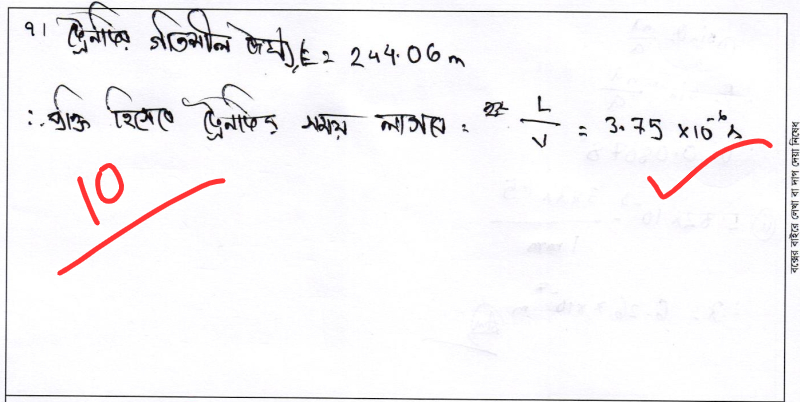 ৭। ট্রেনটির গতিশীল দৈর্ঘ্য, L = 244.06 m
∴ ব্যক্তি হিসেবে ট্রেনটির সময় লাগবে = L/V = 3.75 ×10⁻⁶ s
10
বক্সের বাইরে লেখা বা দাগ দেয়া নিষেধ